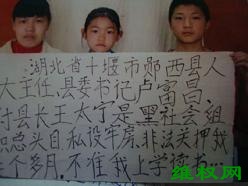 湖北省十堰市郧西县人
大主任.县委书记卢富昌.
付县长王太宁是黑社会组
织总头目.私设牢房.非法关押我
个多月.不准我上学读书...
维权网